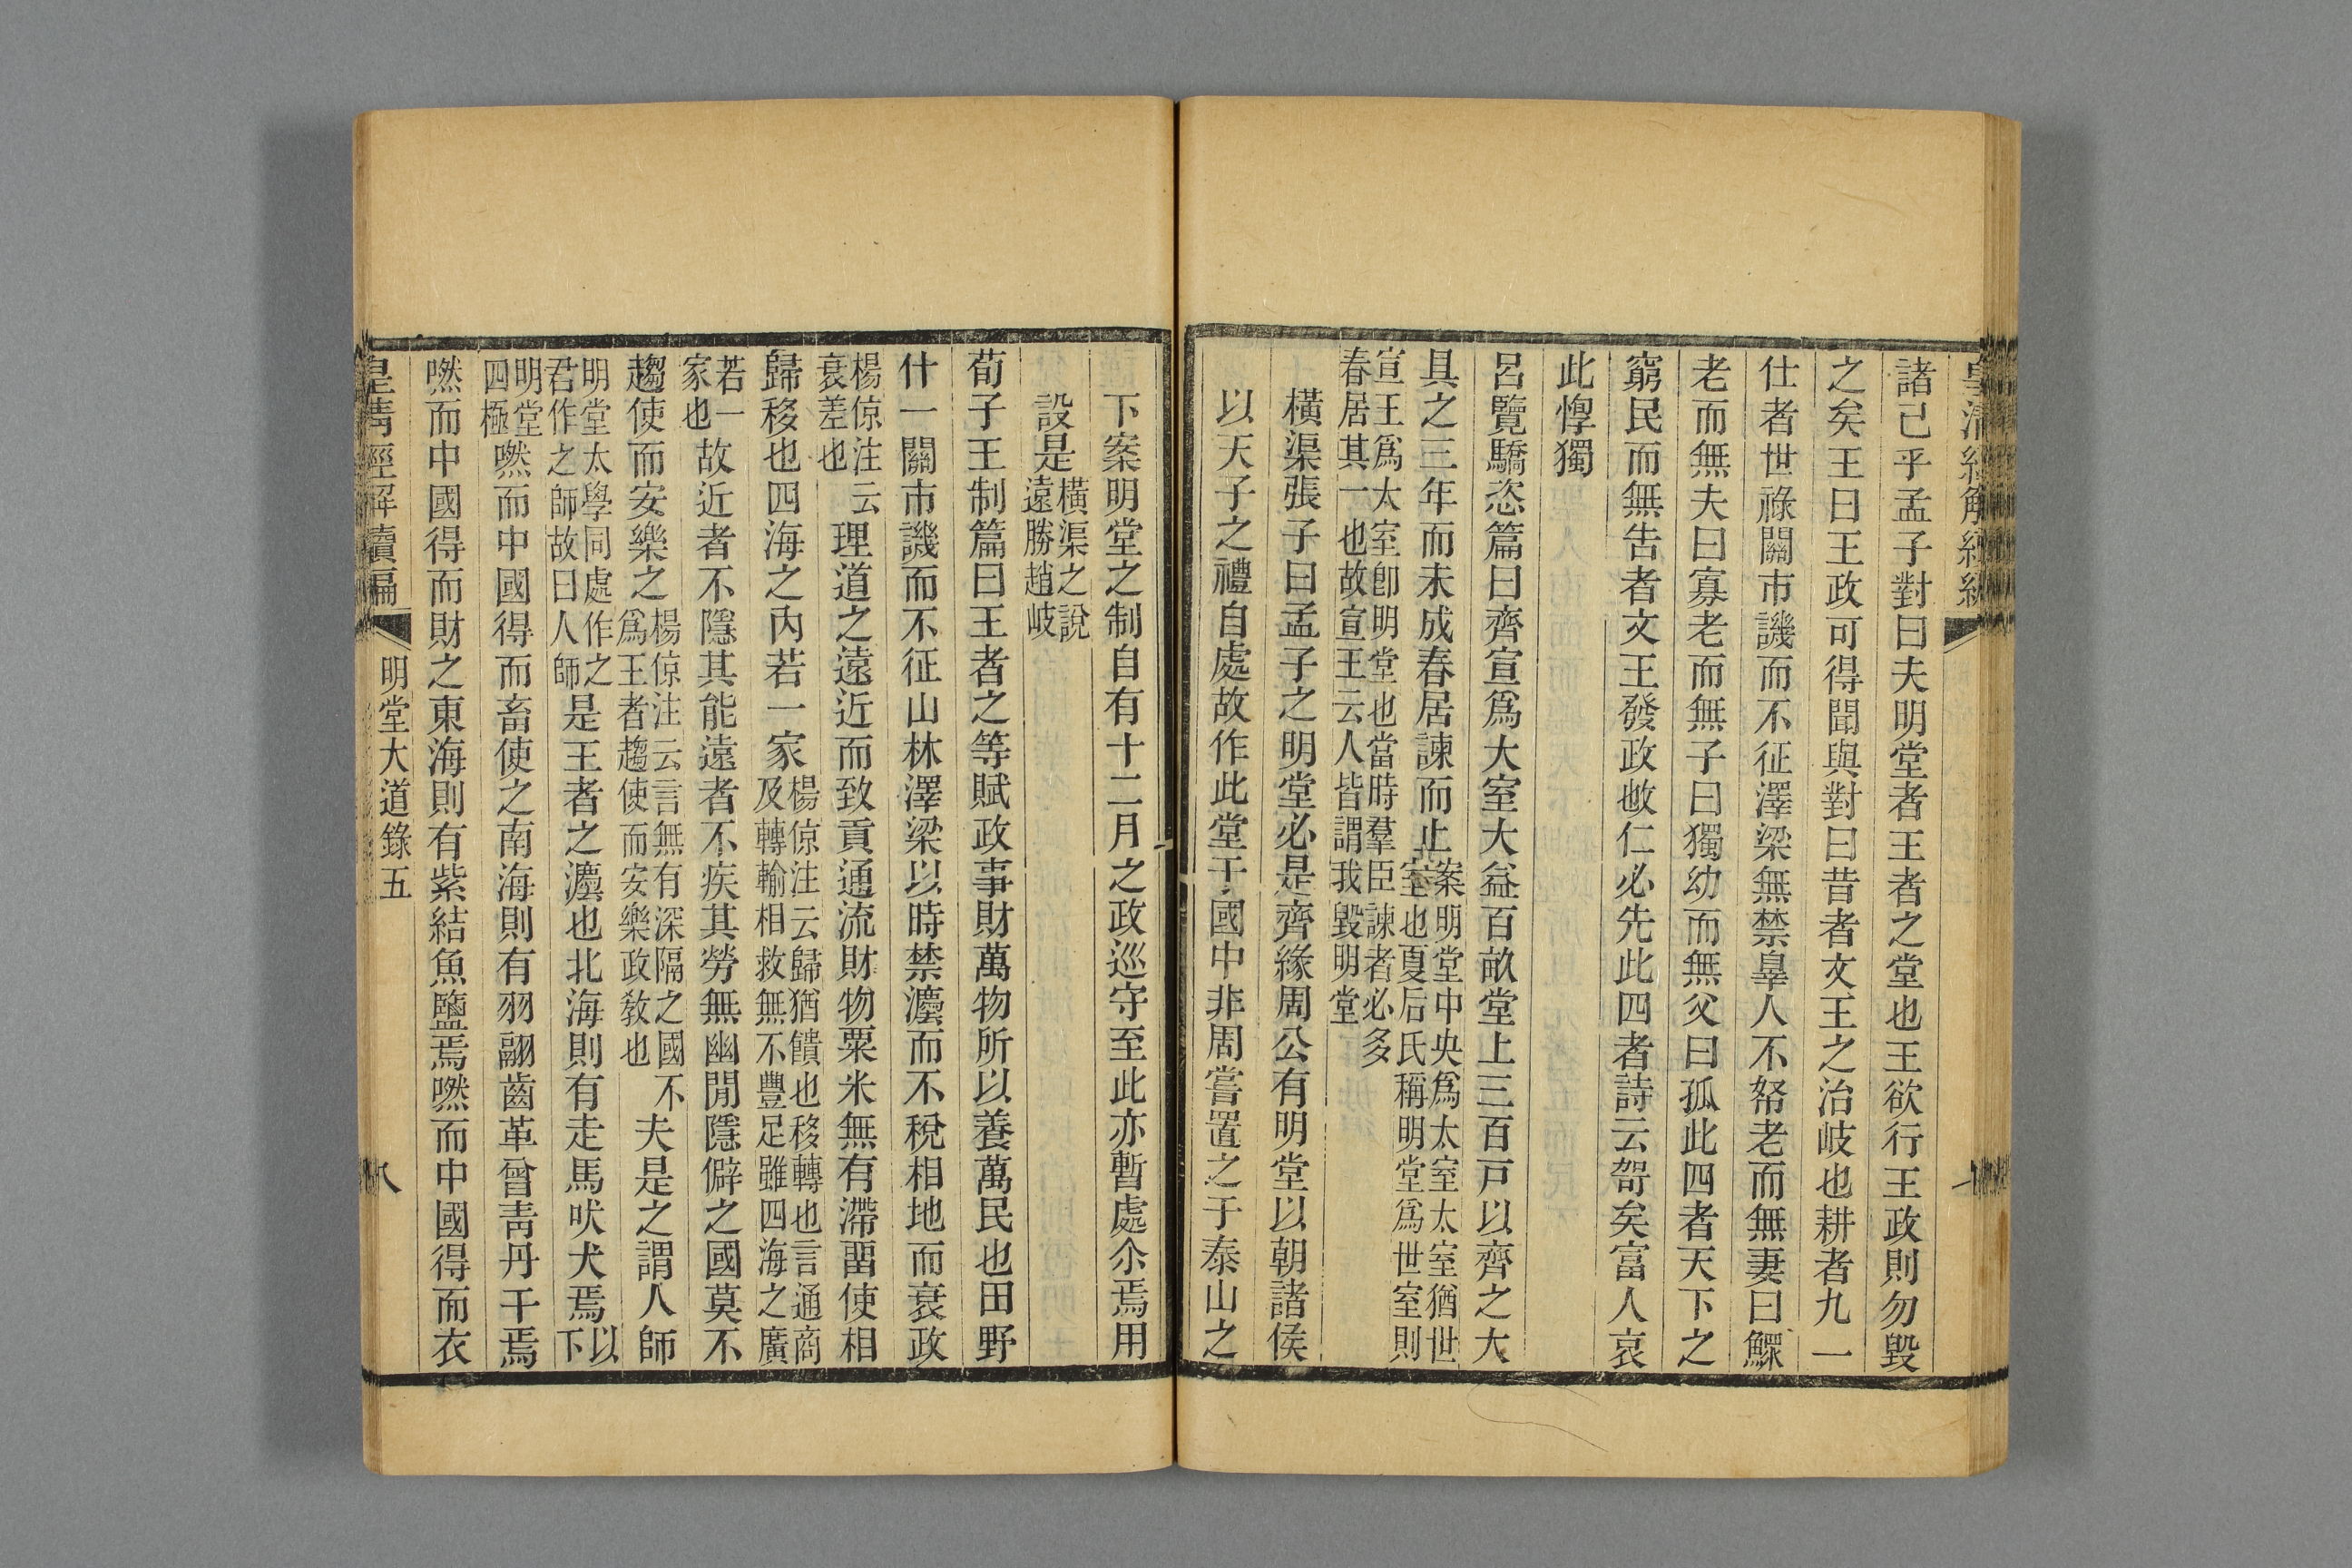 皇清經解續編
諸己乎孟子對曰夫明堂者王者之堂也王欲行王政則勿毀
之矣王曰王政可得聞與對曰昔者文王之治岐也耕者九一
仕者世祿關市譏而不征澤梁無禁辠人不帑老而無妻曰鰥
老而無夫曰寡老而無子曰獨幼而無父曰孤此四者天下之
窮民而無告者文王發政㪅仁必先此四者詩云哿矣富人哀
此惸獨
呂覽驕恣篇曰齊宣爲大室大益百畝堂上三百戸以齊之大
具之三年而未成春居諫而止案明堂中央爲太室太室猶世室也夏后氏稱明堂爲世室則
宣王爲太室卽明堂也當時羣臣諫者必多春居其一也故宣王云人皆謂我毀明堂
橫渠張子曰孟子之明堂必是齊緣周公有明堂以朝諸侯
以天子之禮自處故作此堂于國中非周嘗置之于泰山之
下案明堂之制自有十二月之政巡守至此亦暫處尒焉用
設是橫渠之說遠勝趙岐
荀子王制篇曰王者之等賦政事財萬物所以養萬民也田野
什一關市譏而不征山林澤梁以時禁灋而不稅相地而衰政
楊倞注云衰差也理道之遠近而致貢通流財物粟米無有滯畱使相
歸移也四海之內若一家楊倞注云歸猶饋也移轉也言通商及轉輸相救無不豐足雖四海之廣
若一家也故近者不隱其能遠者不疾其勞無幽閒隱僻之國莫不
趨使而安樂之楊倞注云言無有深隔之國不爲王者趨使而安樂政敎也夫是之謂人師
明堂太學同處作之君作之師故曰人師是王者之灋也北海則有走馬吠犬焉以下
明堂四極㗲而中國得而畜使之南海則有羽翮齒革曾靑丹干焉
㗲而中國得而財之東海則有紫結魚鹽焉㗲而中國得而衣
皇清經解續編 明堂大道錄五 八